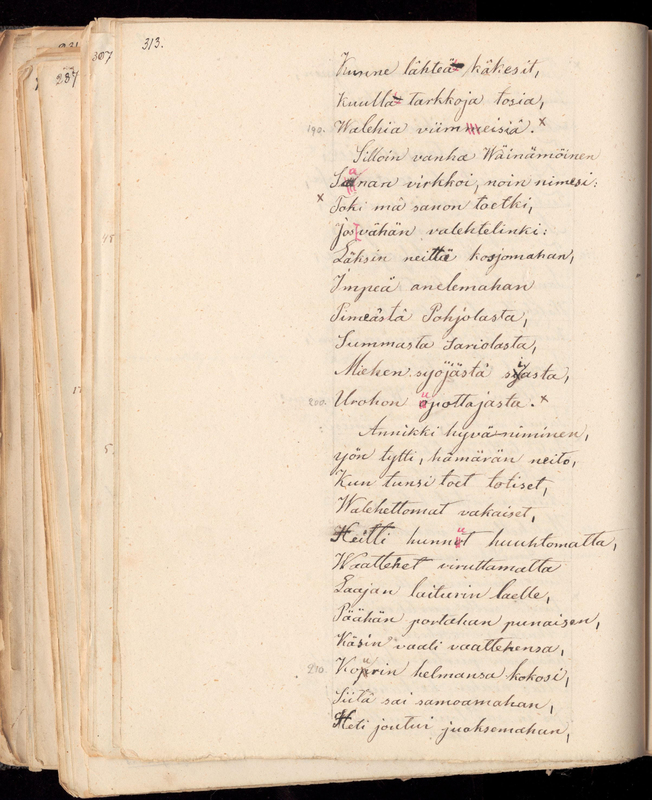 313.
307
237
Kunne lähteä käkesit,
Kuulla tarkkoja tosia,
190. Walehia viimmeisiä. x
Silloin vanha Wäinämöinen
Sanan virkkoi, noin nimesi:
x Toki mä sanon toetki,
Jos vähän valehtelinki:
Läksin neittä kosjomahan,
Impeä anelemahan
Pimeästä Pohjolasta,
Summasta Sariolasta,
Miehen syöjästä sijasta,
200. Urohon upottajasta. x
Annikki hyvä-niminen,
yön tytti, hämärän neito,
Kun tunsi toet totiset,
Walehettomat vakaiset,
Heitti hunnut huuhtomatta,
Waattehet viruttamatta
Laajan laiturin laelle,
Päähän portahan punaisen,
Käsin vaati vaattehensa,
210. Kourin helmansa kokosi,
Siitä sai samoamahan,
Heti joutui juoksemahan,